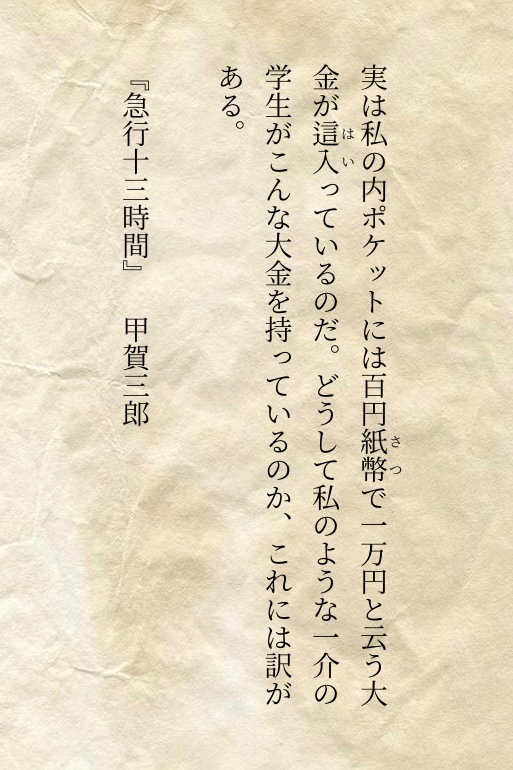 実は私の内ポケットには百円紙幣で一万円と云う大
金が這入っているのだ。どうして私のような一介の
学生がこんな大金を持っているのか、これには訳が
ある。
『急行十三時間』 甲賀三郎